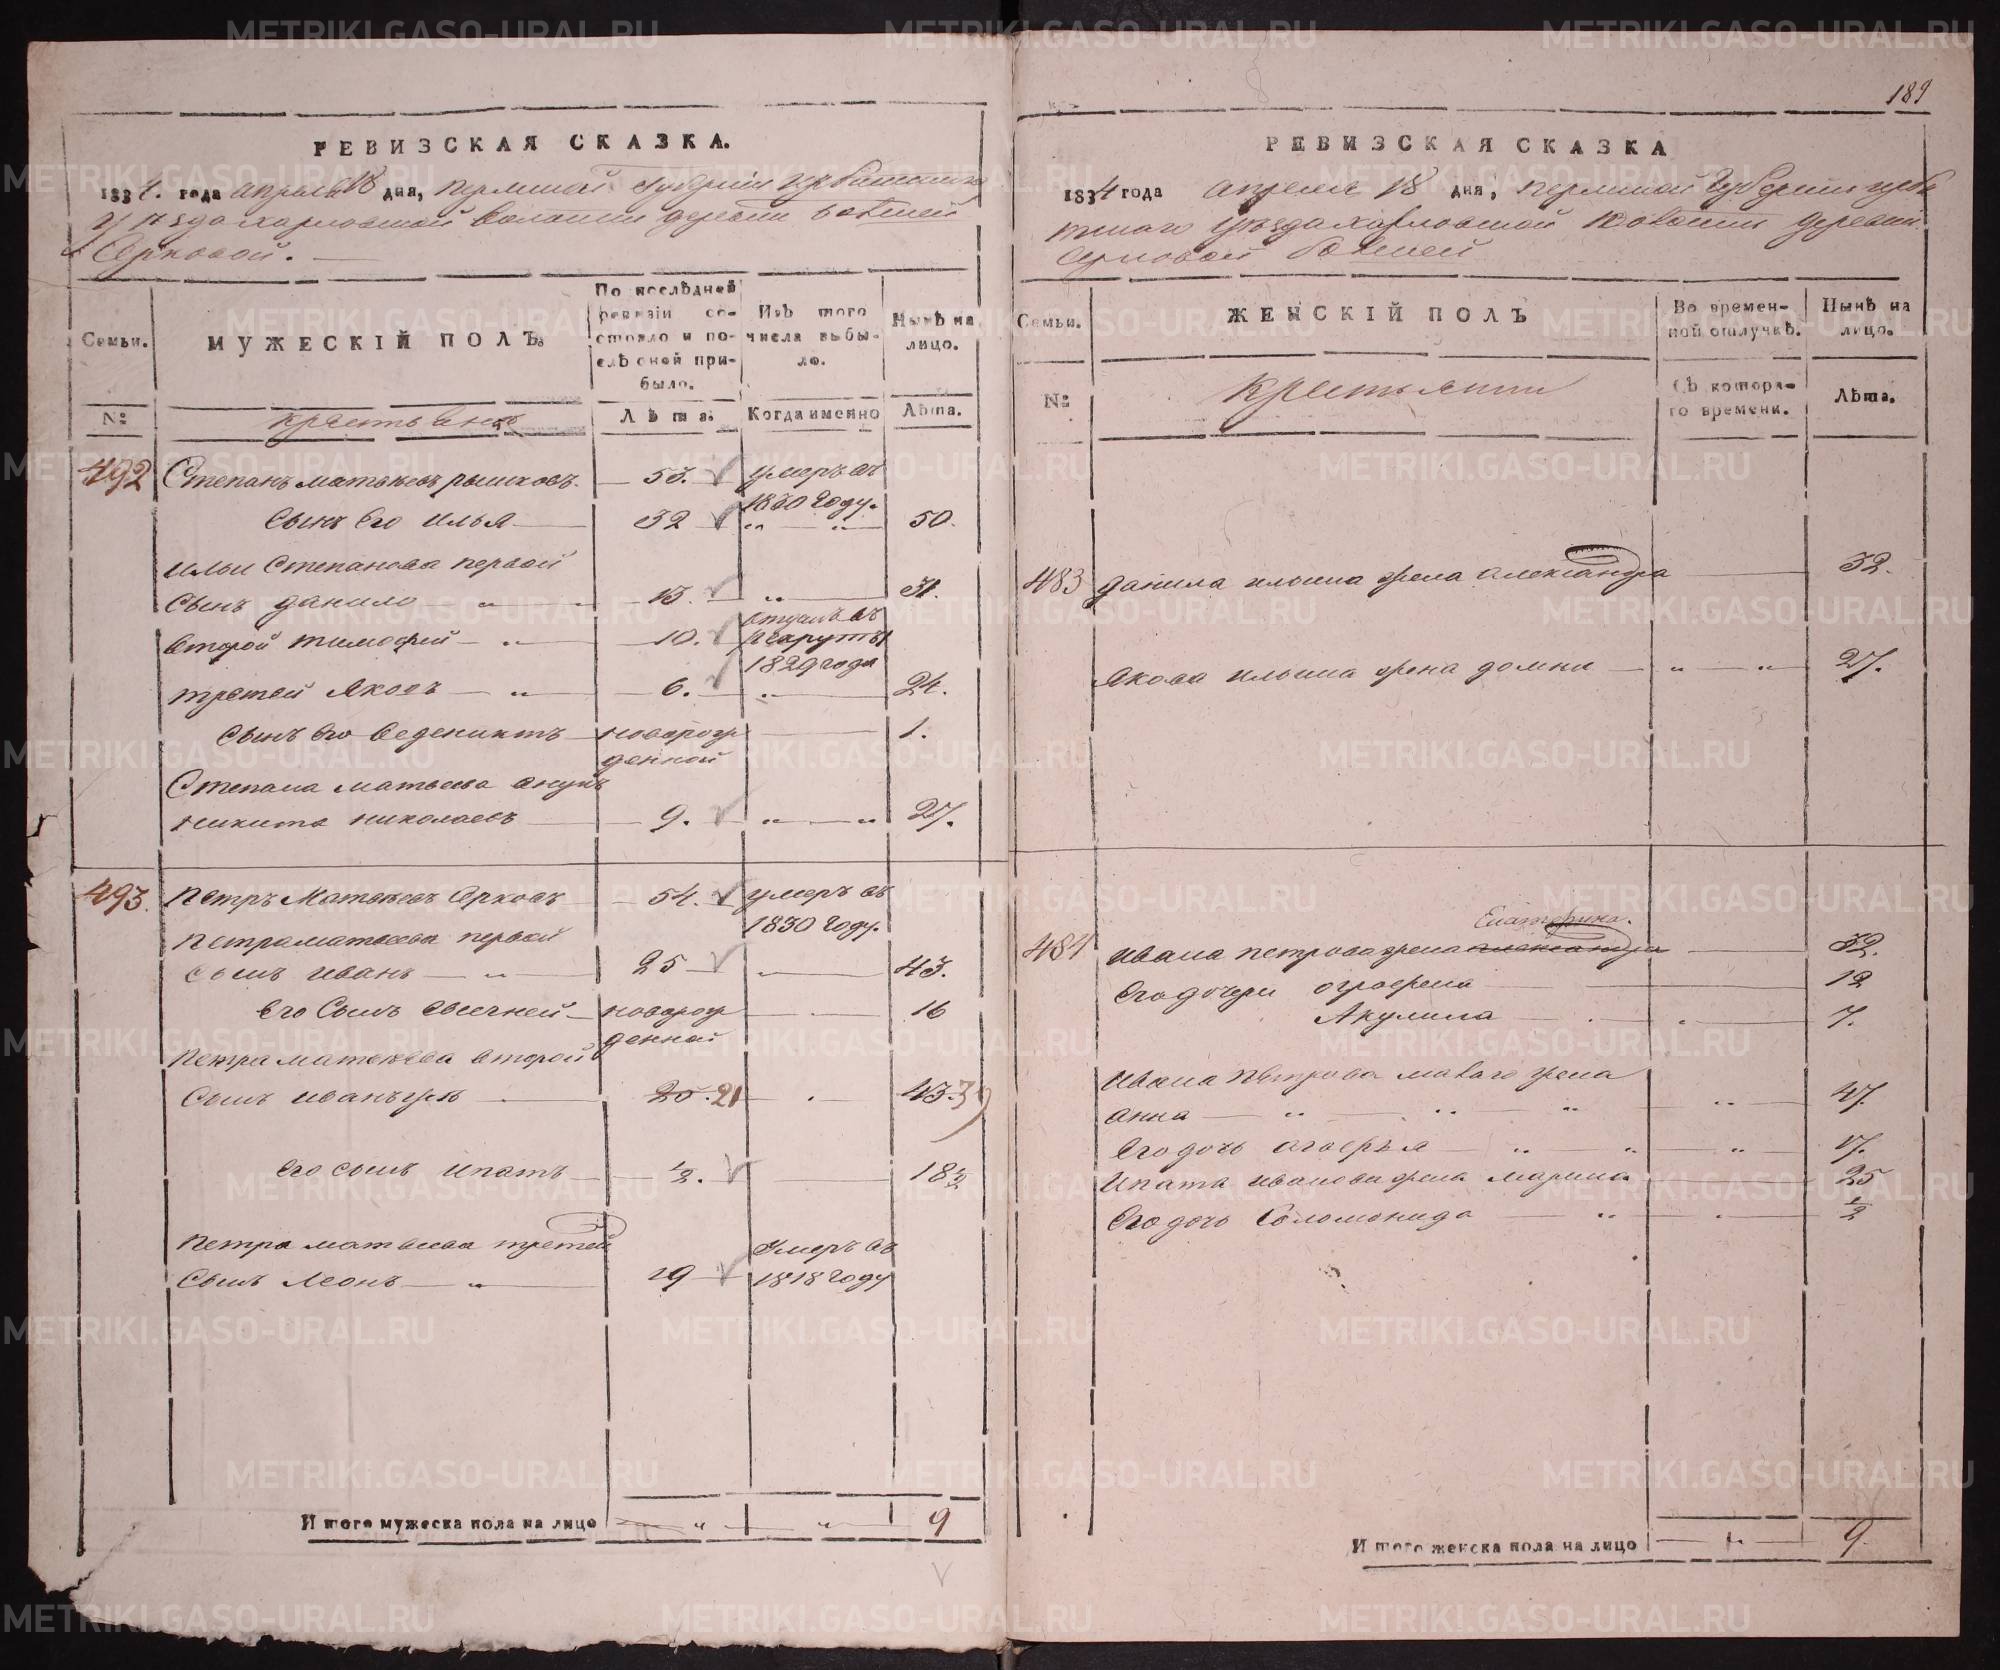 РЕВИЗСКАЯ СКАЗКА.
1834. года апреля 18 дня, пермской Губернии ирбитского
уѣзда харловской волости деревни болшей
Серковой.
Семьи.
МУЖЕСКІЙ ПОЛЪ.
По послѣдней ревизіи состояло и послѣ оной прибыло.
Изъ того числа выбыло.
Нынѣ на лицо.
№
крестьянъ
Лѣта.
Когда именно
Лѣта.
492 Степанъ матвѣевъ рышковъ. 53. умеръ въ 1830 Году.
Сынъ Его илья 32 „ „ 50.
ильи Степанова первой
Сынъ данило „ 13. „ 31.
второй тимофей „ 10. отданъ въ рекруты 1829 года
третей Яковъ „ 6. „ 24.
Сынъ Его веденихтъ новорожденной 1.
Степана матвеева внукъ
никита николаевъ 9. „ „ 27.
493. Петръ Матвѣевъ Серковъ 54. умеръ въ 1830 Году.
Петра матвеева первой
Сынъ иванъ „ 25 „ 43.
Его Сынъ Евсегней новорожденной 16
Петра матвѣева второй
Сынъ иванъ 25. 21 43. 39
Его сынъ ипатъ ½. 18½
Петра матвеева третей
Сынъ Леонъ „ 19 умеръ въ 1818 Году
И того мужеска пола на лицо „ „ 9
189
РЕВИЗСКАЯ СКАЗКА
1834 года апреля 18 дня, пермской Губернии ирби
тского уѣзда харловской волости деревни
Серковой болшей
Семьи.
ЖЕНСКІЙ ПОЛЪ
Во временной отлучкѣ.
Нынѣ на лицо.
№
крестьянъ
Съ котораго времени.
Лѣта.
483 данила ильина жена александра 32.
Якова ильина жена домна „ „ 27.
Екатерина.
484 ивана петрова жена александра 32.
Его дочери огрофена 12
Акулина 7.
ивана Петрова малаго жена
анна „ „ „ „ 47.
Его дочь агафья „ „ „ 17.
ипата иванова жена марина 25
Его дочь Соломонида „ ½
И того женска пола на лицо „ 9.
METRIKI.GASO-URAL.RU